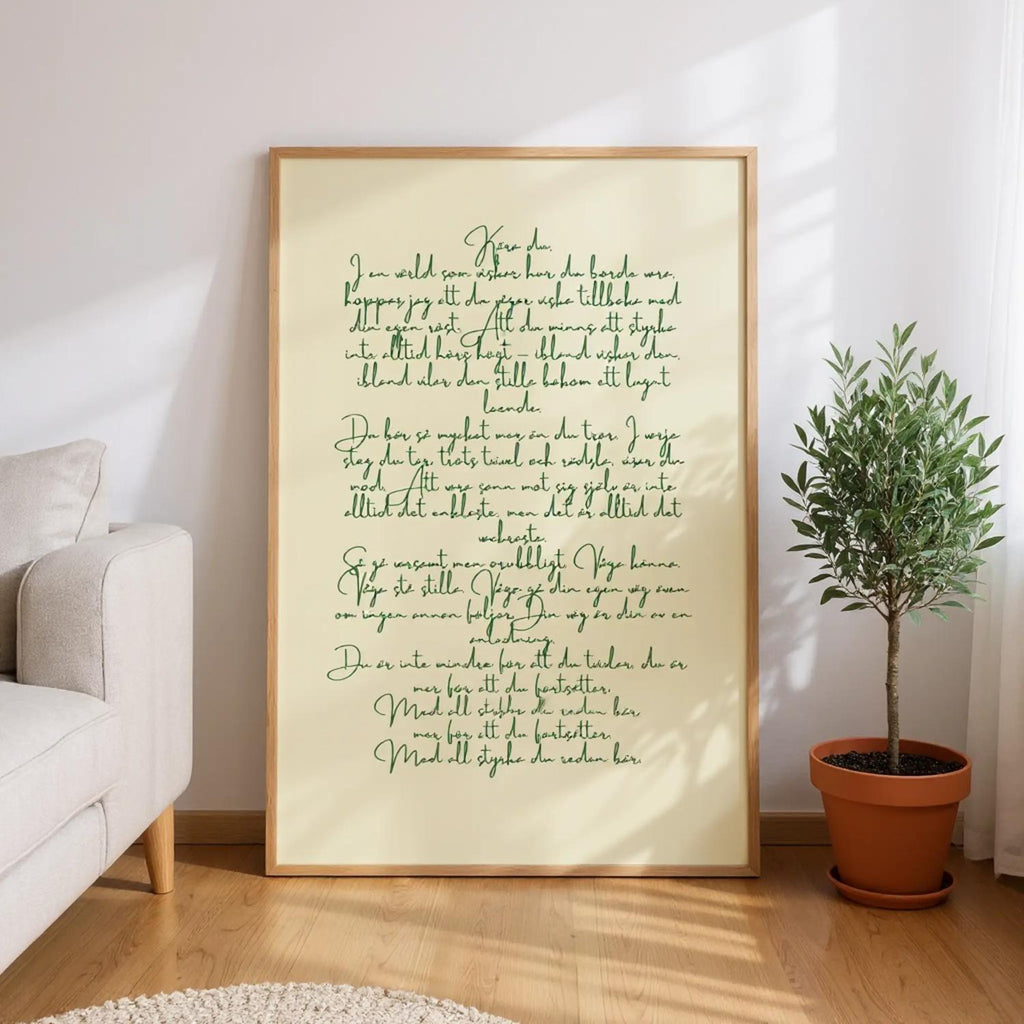 Kära du,
I en värld som viskar hur du borde vara,
hoppas jag att du vågar viska tillbaka med
din egen röst. Att du minns att styrka
inte alltid hörs högt – ibland viskar den,
ibland vilar den stilla bakom ett lugnt
leende.
Du bär så mycket mer än du tror. I varje
steg du tar, trots tvivel och rädsla, visar du
mod. Att vara sann mot sig själv är inte
alltid det enklaste, men det är alltid det
vackraste.
Så gå varsamt men orubbligt. Våga känna.
Våga stå stilla. Våga gå din egen väg även
om ingen annan följer. Din väg är din av en
anledning.
Du är inte mindre för att du tvivlar, du är
mer för att du fortsätter.
Med all styrka du redan bär,
mer för att du fortsätter.
Med all styrka du redan bär,